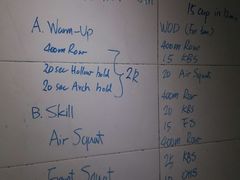 15 cup in 12m
A. Warm-Up
400m Row
20 sec Hollow hold
20 sec Arch hold
2R
B. Skill
Air Squat
Front Squat
WOD (For time)
400m Row
15 KBS
20 Air Squat
400m Row
20 KBS
15 FS
400m Row
KBS